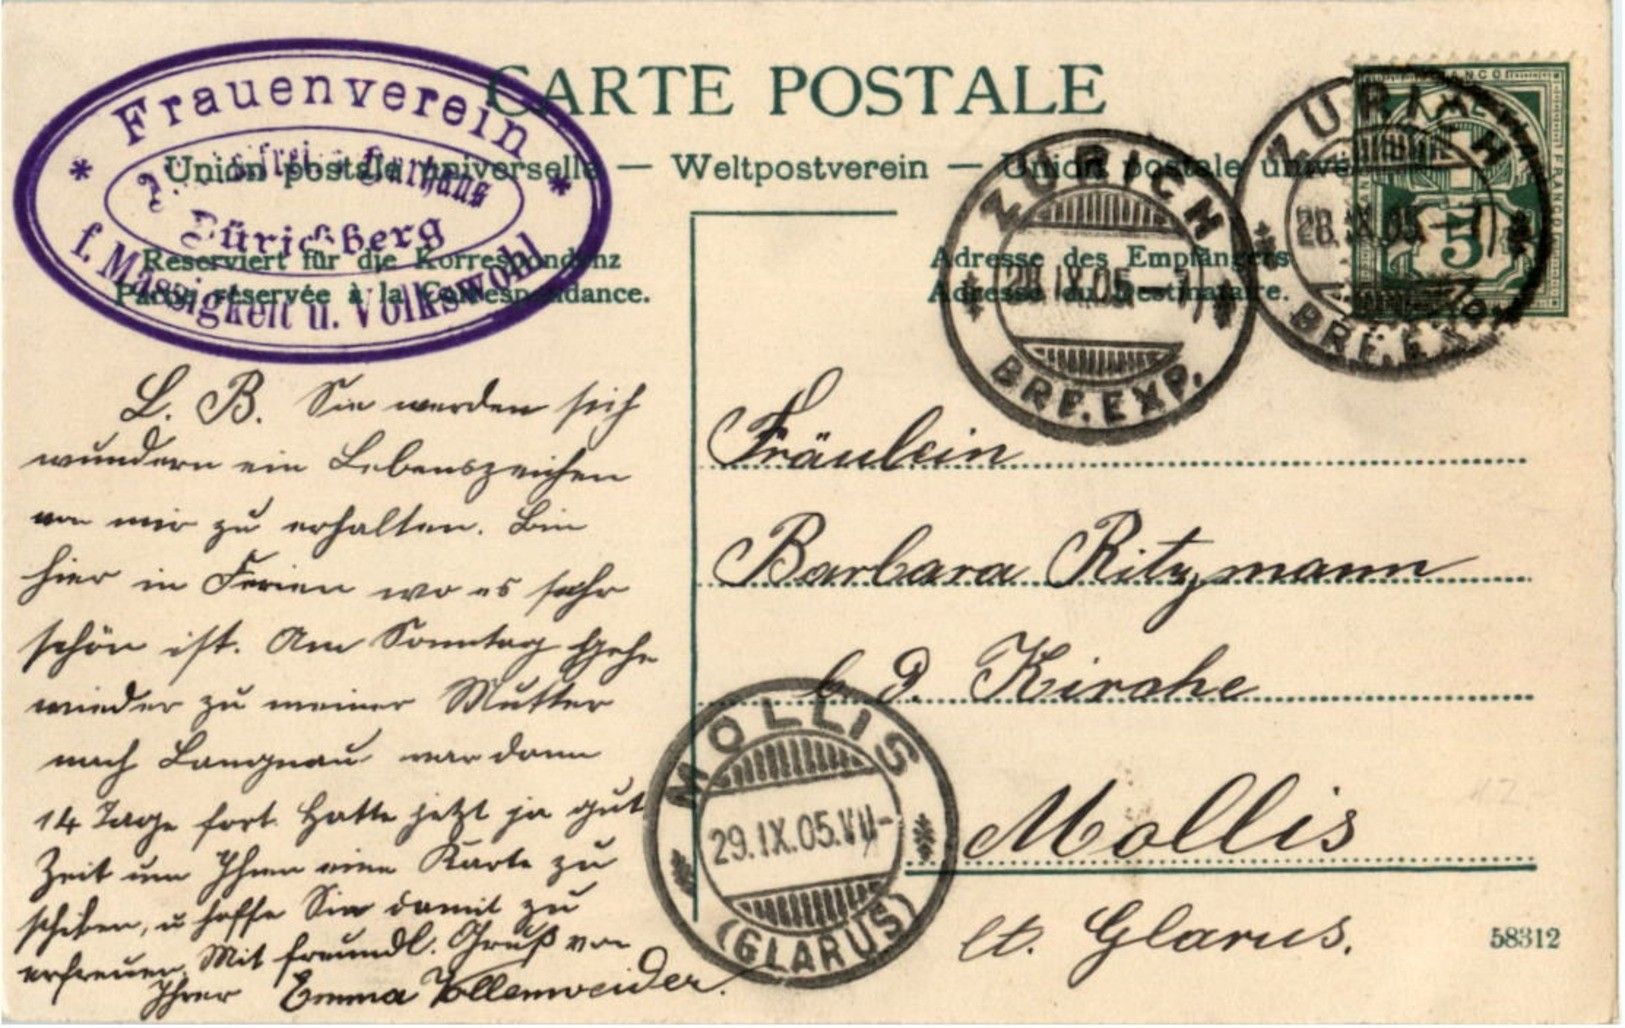 CARTE POSTALE
Union postale universelle — Weltpostverein — Union postale
* Frauenverein *
Kurhaus
Zürichberg
f. Mässigkeit u. Volkswohl
Reserviert für die Korrespondenz
Partie réservée à la Correspondance.
Adresse des Empfängers
Adresse du Destinataire.
ZÜRICH
28.IX.05.
BRF.EXP.
ZÜRICH
28.IX.05.
BRF.EXP.
FRANCO
FRANCO
5
L. B. Sie werden sich
wundern ein Lebenszeichen
von mir zu erhalten. Bin
hier in Ferien wo es sehr
schön ist. Am Sonntag gehe
wieder zu meiner Mutter
nach Langnau war dann
14 Tage fort. Hatte jetzt ja gut
Zeit um Ihnen eine Karte zu
schiken, u. hoffe Sie damit zu
erfreuen. Mit freundl. Gruß von
Ihrer Emma Vollenweider.
Fräulein
Barbara Ritzmann
b. d. Kirche
Mollis
Ct. Glarus.
MOLLIS
29.IX.05.VII-
(GLARUS)
58312